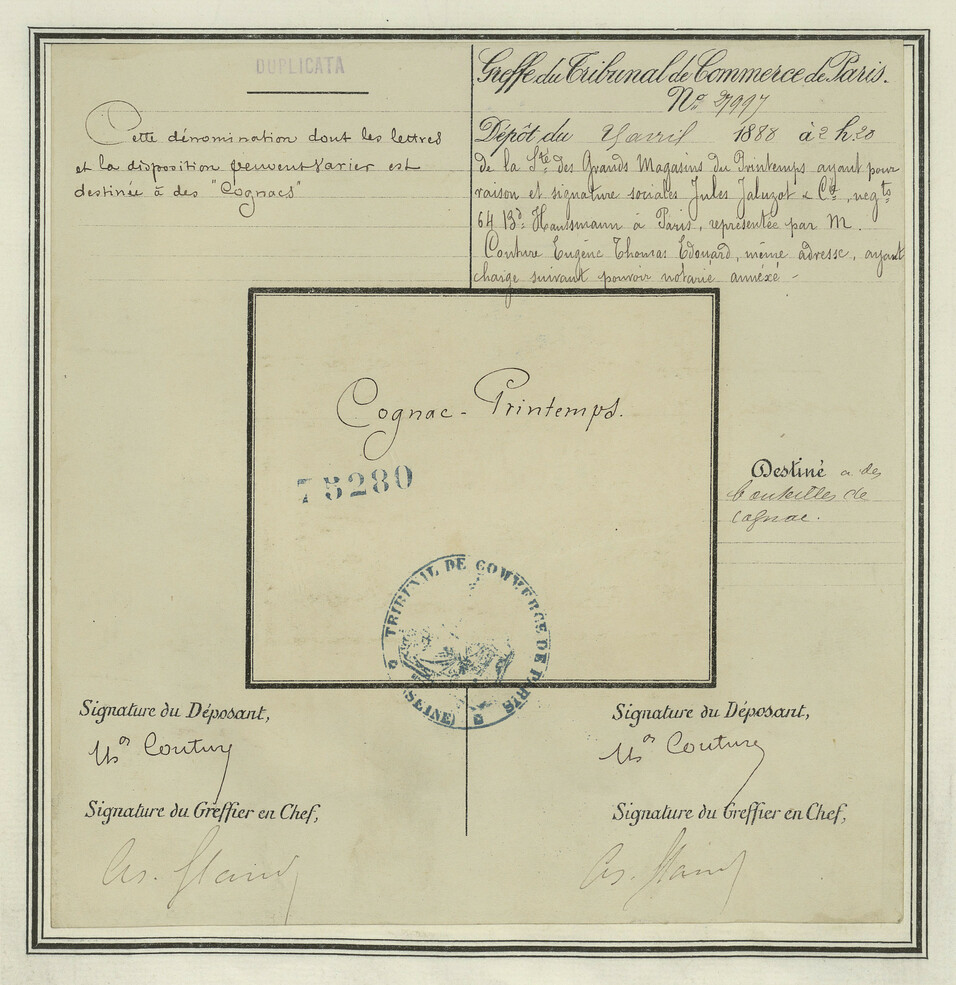 DUPLICATA
Cette dénomination dont les lettres
et la disposition peuvent varier est
destinée à des "Cognacs"
Greffe du Tribunal de Commerce de Paris.
No. 27997
Dépôt du avril 1888 à 2 h.20
de la Sté des Grands Magasins du Printemps ayant pour
raison et signature sociales Jules Jaluzot & Cie, negts
64 Bd Haussmann à Paris, représentée par M.
Couture Eugène Thomas Edouard, même adresse, ayant
charge suivant pouvoir notarié annexé -
Cognac - Printemps.
75280
Destiné a des
bouteilles de
cognac.
TRIBUNAL DE COMMERCE DE PARIS
(SEINE)
Signature du Déposant,
Couture
Signature du Greffier en Chef,
Signature du Déposant,
Couture
Signature du Greffier en Chef,